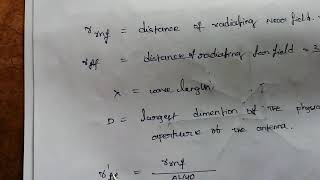 r rnf = distance of radiating near field.
r ff = distance of radiating far field = 3
λ = wave length.
D = largest dimention of the physi
aperture of the antenna.
r' = r rnf